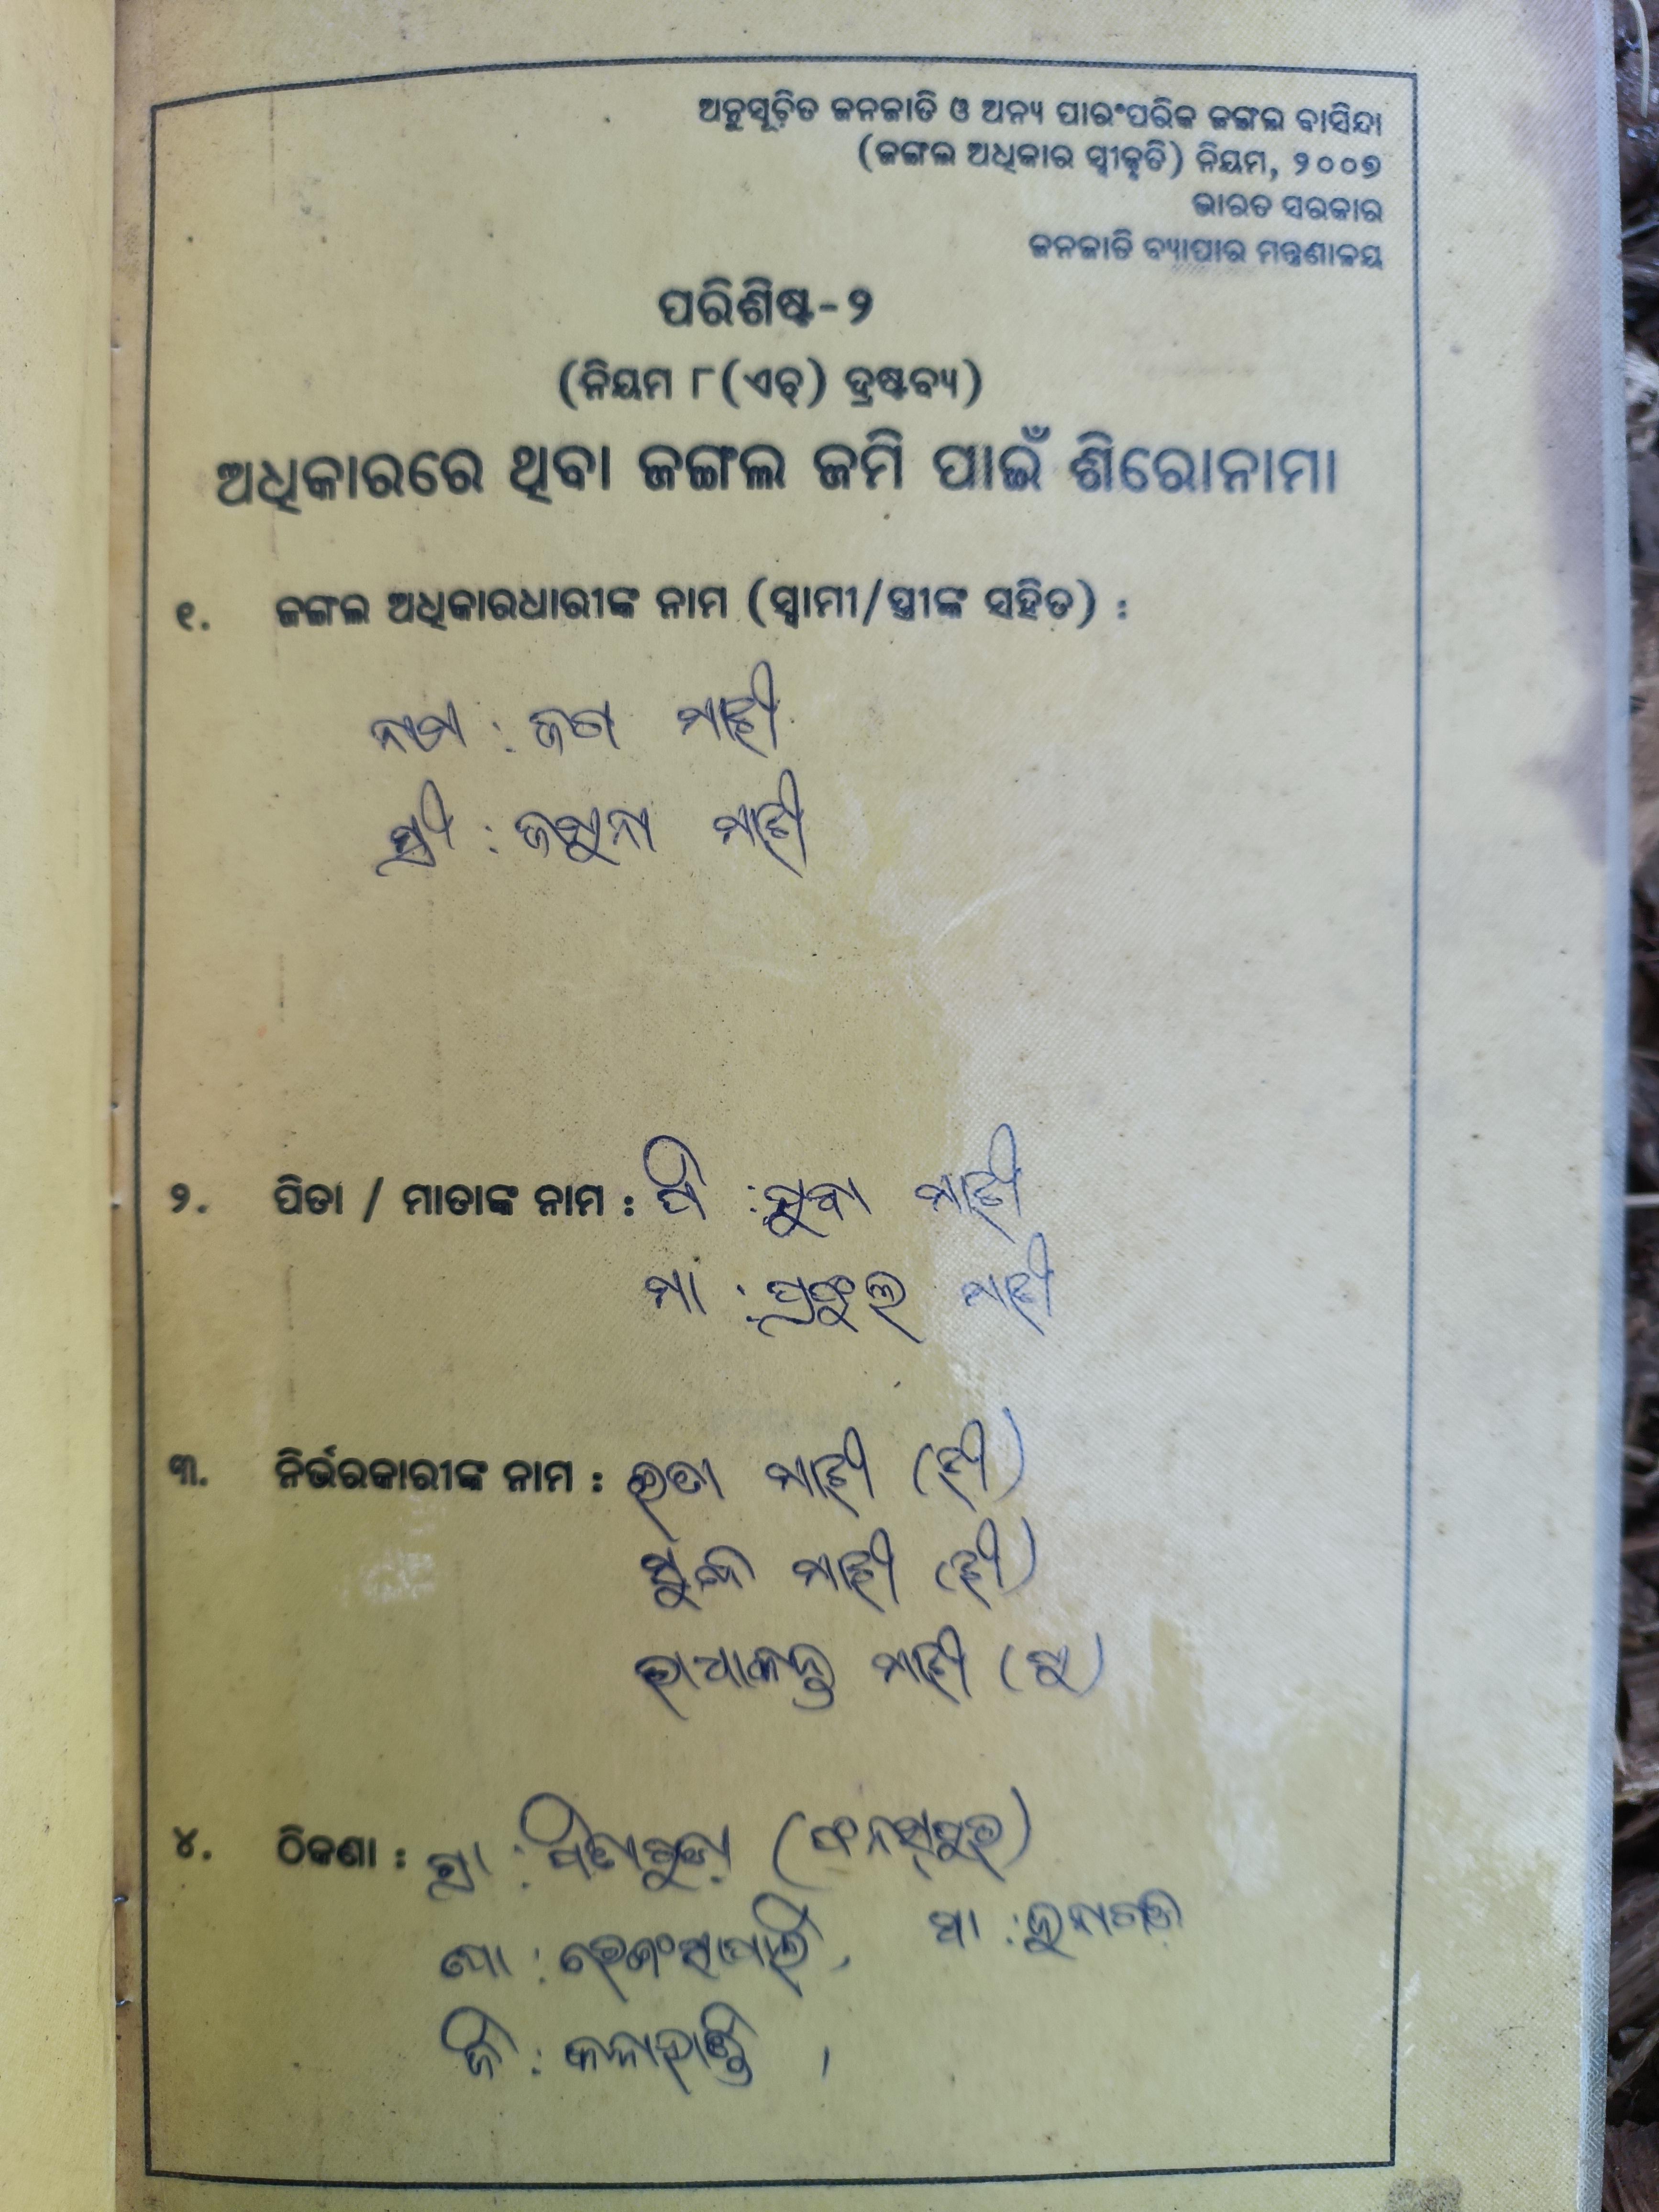 ଅନୁସୂଚିତ ଜନଜାତି ଓ ଅନ୍ୟ ପାରଂପରିକ ଜଙ୍ଗଲ ବାସିନ୍ଦା
(ଜଙ୍ଗଲ ଅଧିକାର ସ୍ୱୀକୃତି) ନିୟମ, ୨୦୦୭
ଭାରତ ସରକାର
ଜନଜାତି ବ୍ୟାପାର ମନ୍ତ୍ରଣାଳୟ
ପରିଶିଷ୍ଟ-୨
(ନିୟମ ୮(ଏଚ୍) ଦ୍ରଷ୍ଟବ୍ୟ)
ଅଧିକାରରେ ଥିବା ଜଙ୍ଗଲ ଜମି ପାଇଁ ଶିରୋନାମା
୧. ଜଙ୍ଗଲ ଅଧିକାରଧାରୀଙ୍କ ନାମ (ସ୍ୱାମୀ/ସ୍ତ୍ରୀଙ୍କ ସହିତ) :
ନାମ : ଜଗ ମାଝୀ
ସ୍ତ୍ରୀ : ଜମୁନା ମାଝୀ
୨. ପିତା / ମାତାଙ୍କ ନାମ : ପି : ମାଝୀ
ମା : ମାଝୀ
୩. ନିର୍ଭରକାରୀଙ୍କ ନାମ : ମାଝୀ (ଝୀ)
ମାଝୀ (ଝୀ)
ମାଝୀ (ପୁ)
୪. ଠିକଣା : ଗ୍ରା :
ପୋ : , ଥା : ଜୁନାଗଡ଼
ଜି : କଳାହାଣ୍ଡି ,